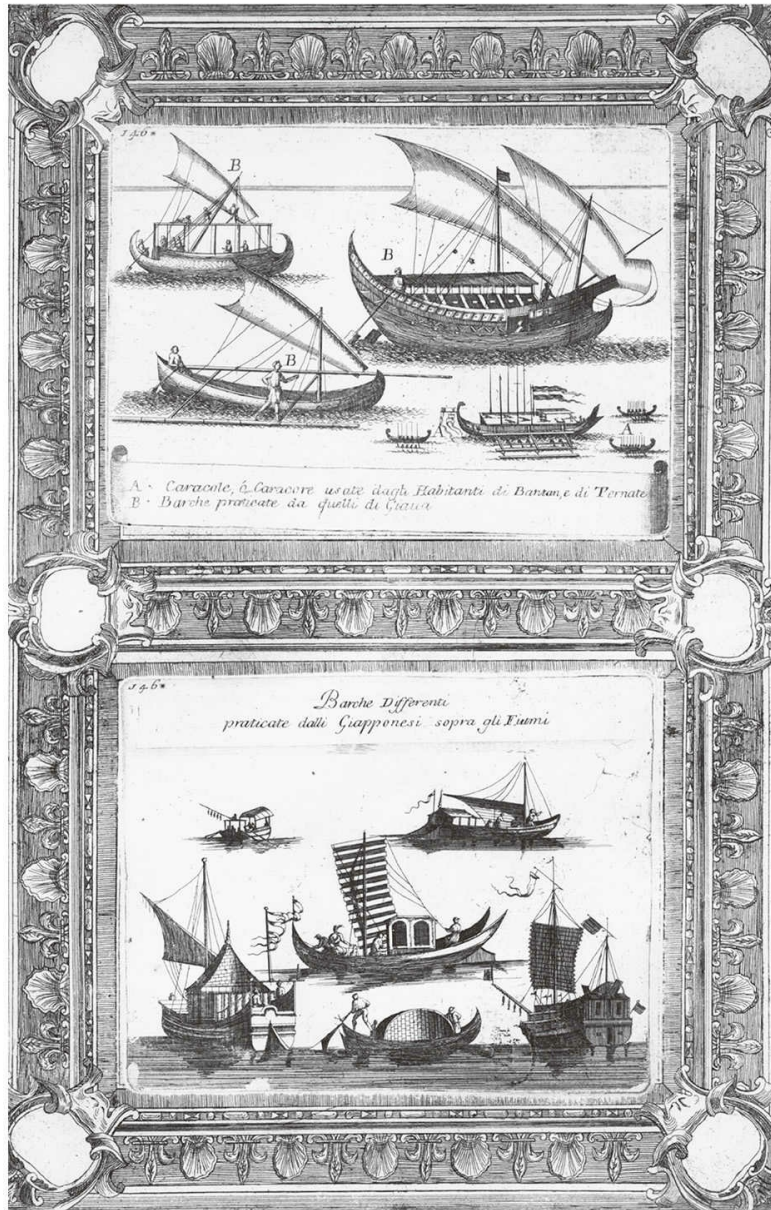 146
B
B
B
A
A
A · Caracole, ó Caracore usate dagli Habitanti di Bantan, e di Ternate
B · Barche praticate da quelli di Giaua
146
Barche Differenti
praticate dalli Giapponesi sopra gli Fiumi